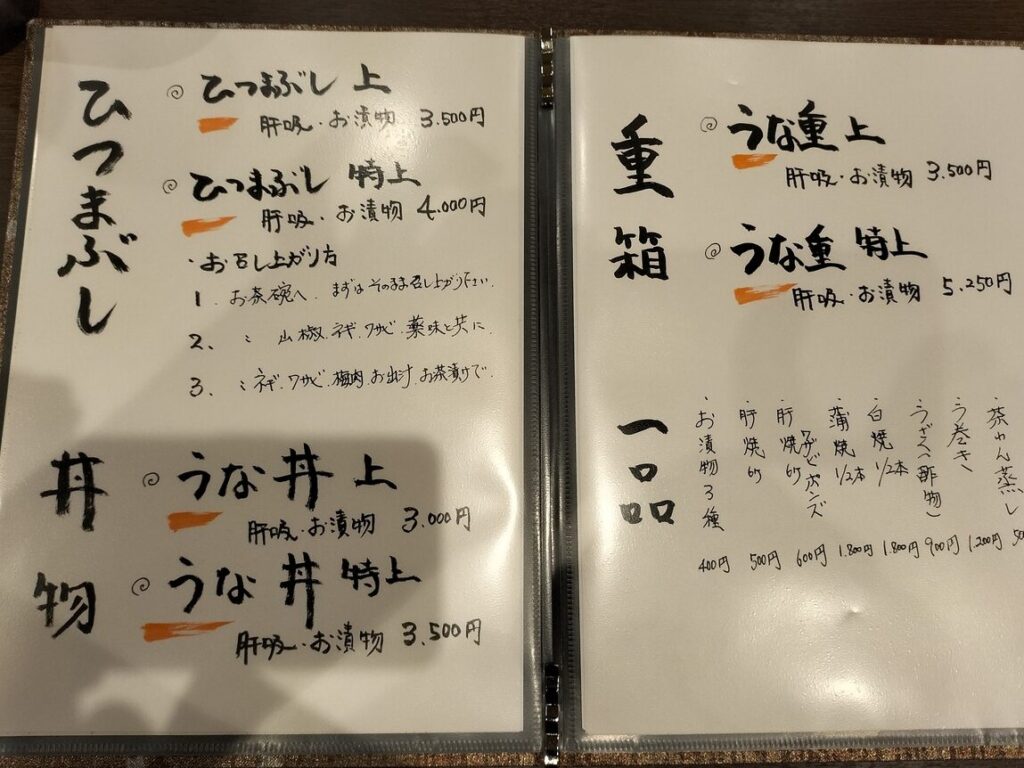 ひつまぶし
ひつまぶし 上
肝吸・お漬物 3.500円
ひつまぶし 特上
肝吸・お漬物 4.000円
・お召し上がり方
1. お茶碗へ、まずはそのまま召し上がり下さい。
2. 〃 山椒、ネギ、ワサビ、薬味と共に。
3. 〃 ネギ、ワサビ、梅肉、お出汁、お茶漬けで。
丼物
うな丼 上
肝吸・お漬物 3.000円
うな丼 特上
肝吸・お漬物 3.500円
重箱
うな重 上
肝吸・お漬物 3.500円
うな重 特上
肝吸・お漬物 5.250円
一品
・茶わん蒸し
・う巻き 1.200円
・うざく(酢物) 900円
・白焼 1/2本 1.800円
・蒲焼 1/2本 1.800円
・肝焼 ワサビポンズ 600円
・肝焼 500円
・お漬物3種 400円